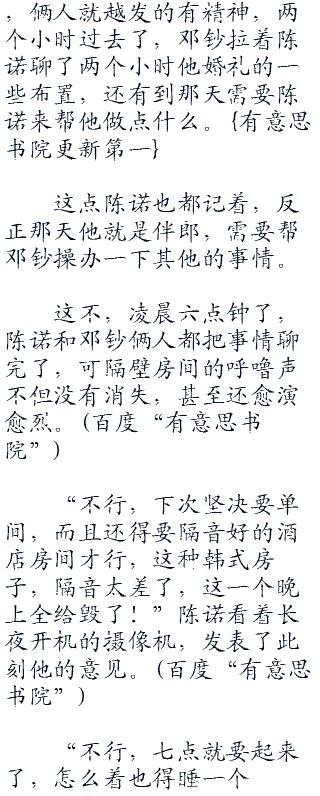 ，俩人就越发的有精神，两
个小时过去了，邓钞拉着陈
诺聊了两个小时他婚礼的一
些布置，还有到那天需要陈
诺来帮他做点什么。{有意思
书院更新第一}
这点陈诺也都记着，反
正那天他就是伴郎，需要帮
邓钞操办一下其他的事情。
这不，凌晨六点钟了，
陈诺和邓钞俩人都把事情聊
完了，可隔壁房间的呼噜声
不但没有消失，甚至还愈演
愈烈。(百度“有意思书
院”)
“不行，下次坚决要单
间，而且还得要隔音好的酒
店房间才行，这种韩式房
子，隔音太差了，这一个晚
上全给毁了！”陈诺看着长
夜开机的摄像机，发表了此
刻他的意见。(百度“有意思
书院”)
“不行，七点就要起来
了，怎么着也得睡一个